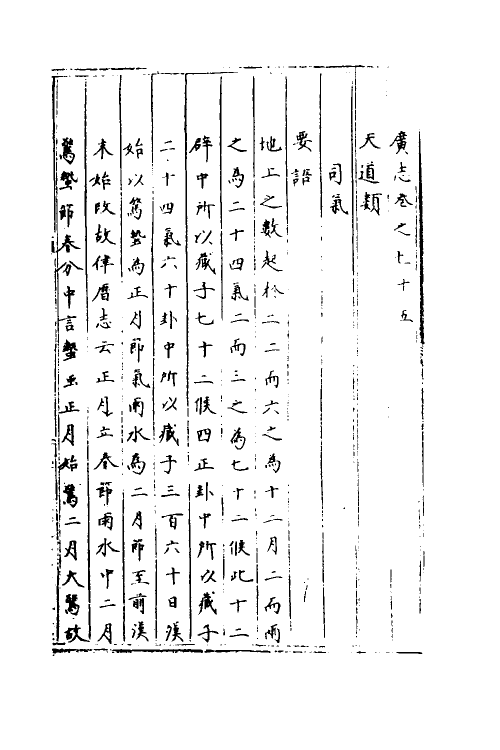 廣志卷之七十五
天道類
司氣
要語
地上之數起於二二而六之為十二月二而兩
之為二十四氣二而三之為七十二候此十二
辟中所以藏于七十二候四正卦中所以藏于
二十四氣六十卦中所以藏于三百六十日漢
始以驚蟄為正月節氣雨水為二月節至前漢
末始改故律曆志云正月立春節雨水中二月
驚蟄節春分中言蟄虫正月始驚二月大驚故